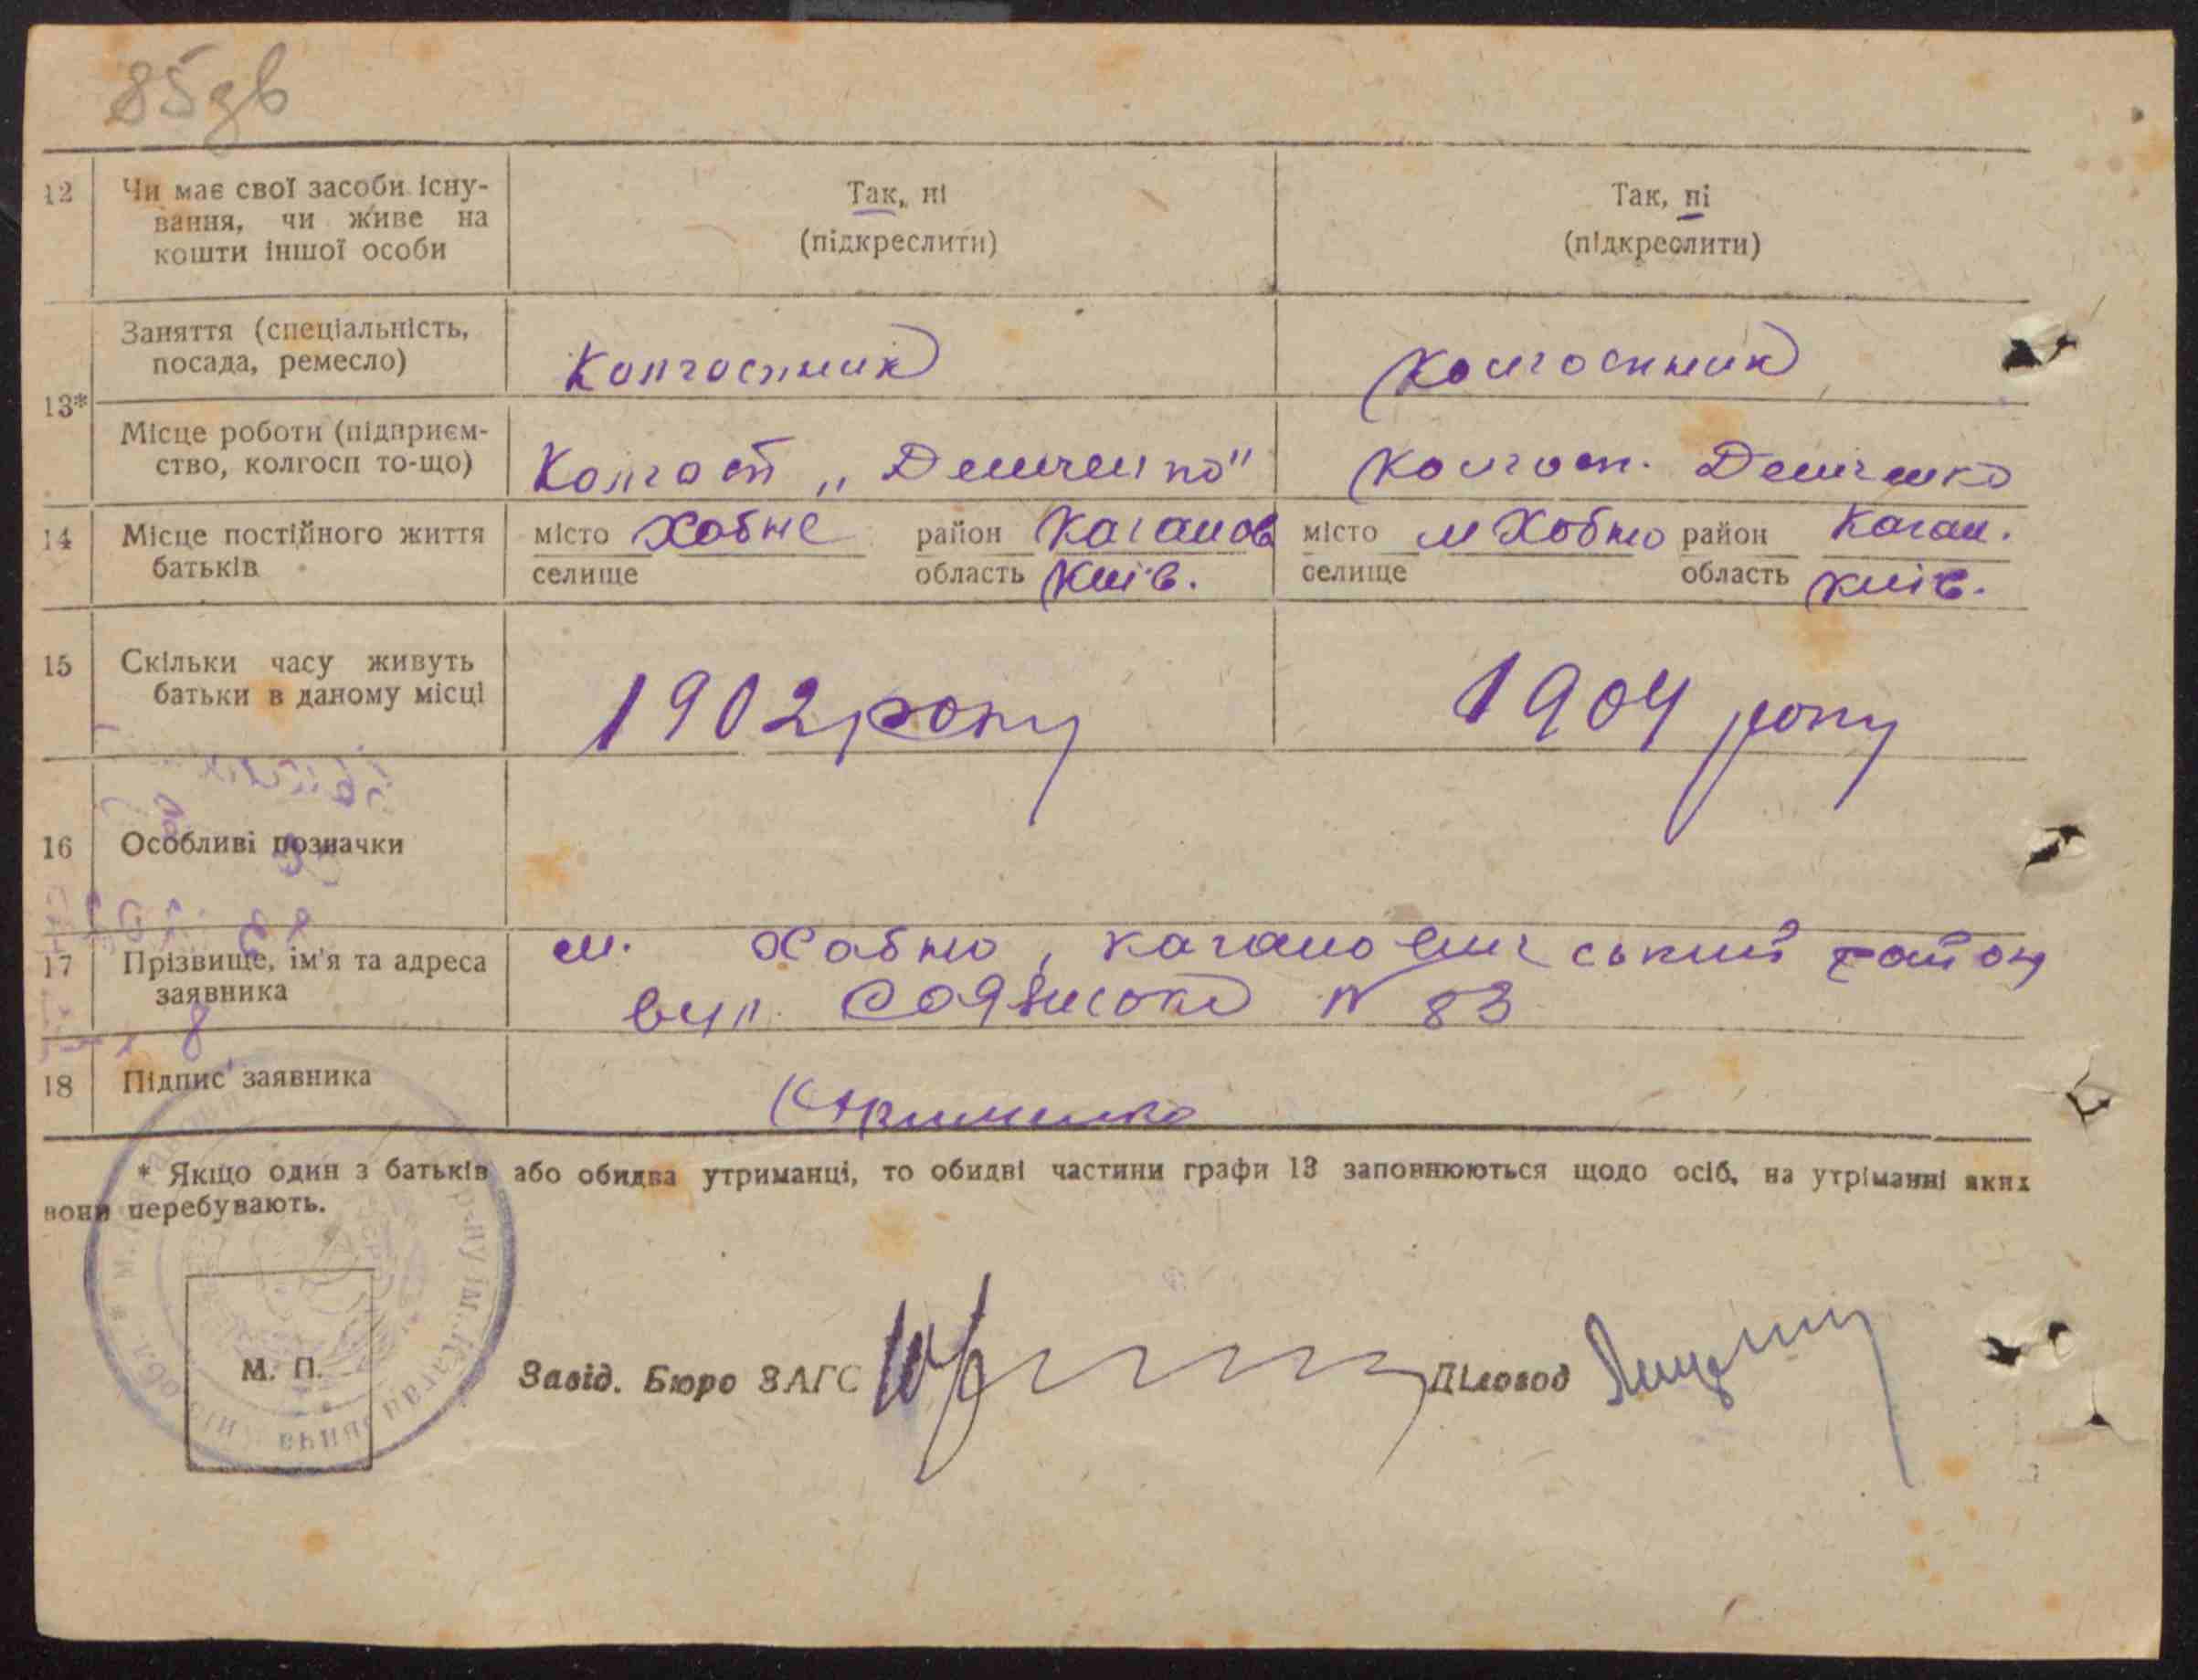 85зв
12 Чи має свої засоби існу-
вання, чи живе на
кошти іншої особи
Так, ні
(підкреслити)
Так, ні
(підкреслити)
13*
Заняття (спеціальність,
посада, ремесло)
Колгоспник
Колгоспник
Місце роботи (підприєм-
ство, колгосп то-що)
Колгосп „Демченко"
Колгосп. Демченко
14 Місце постійного життя
батьків
місто Хабне район Каганов
селище область Київ.
місто м Хобно район Каган.
селище область Київ.
15 Скільки часу живуть
батьки в даному місці
1902 року
1904 року
16 Особливі позначки
17 Прізвище, ім'я та адреса
заявника
м. Хабно, кагановичський район
вул. N 83
18 Підпис заявника
* Якщо один з батьків або обидва утриманці, то обидві частини графи 13 заповнюються щодо осіб, на утріманні яких
вони перебувають.
р-ну ім. Кагановича
обл.
М. П.
Завід. Бюро ЗАГС
Діловод